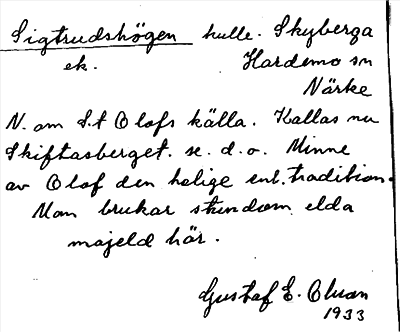 Sigtrudshögen kulle. Skyberga
ek. Hardemo sn
Närke
N. om S:t Olofs källa. Kallas nu
Skiftasberget. se. d. o. Minne
av Olof den helige enl. tradition.
Man brukar stundom elda
majeld här.
Gustaf E. Olsson
1933